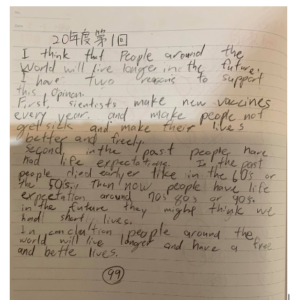 20年度第1回
I think that people around the
world will live longer in the future.
I have two reasons to support
this opinion.
First, scientists make new vaccines
every year, and make people not
get sick and make their lives
better and freely.
Second, in the past people have
had life expectations. In the past
people died earlyer like in the 60s or
the 50s, then now people have life
expectation around 70s 80s or 90s
in the future they might think we
had short lives.
In conclution people around the
world will live longer and have a free
and bette lives.
99